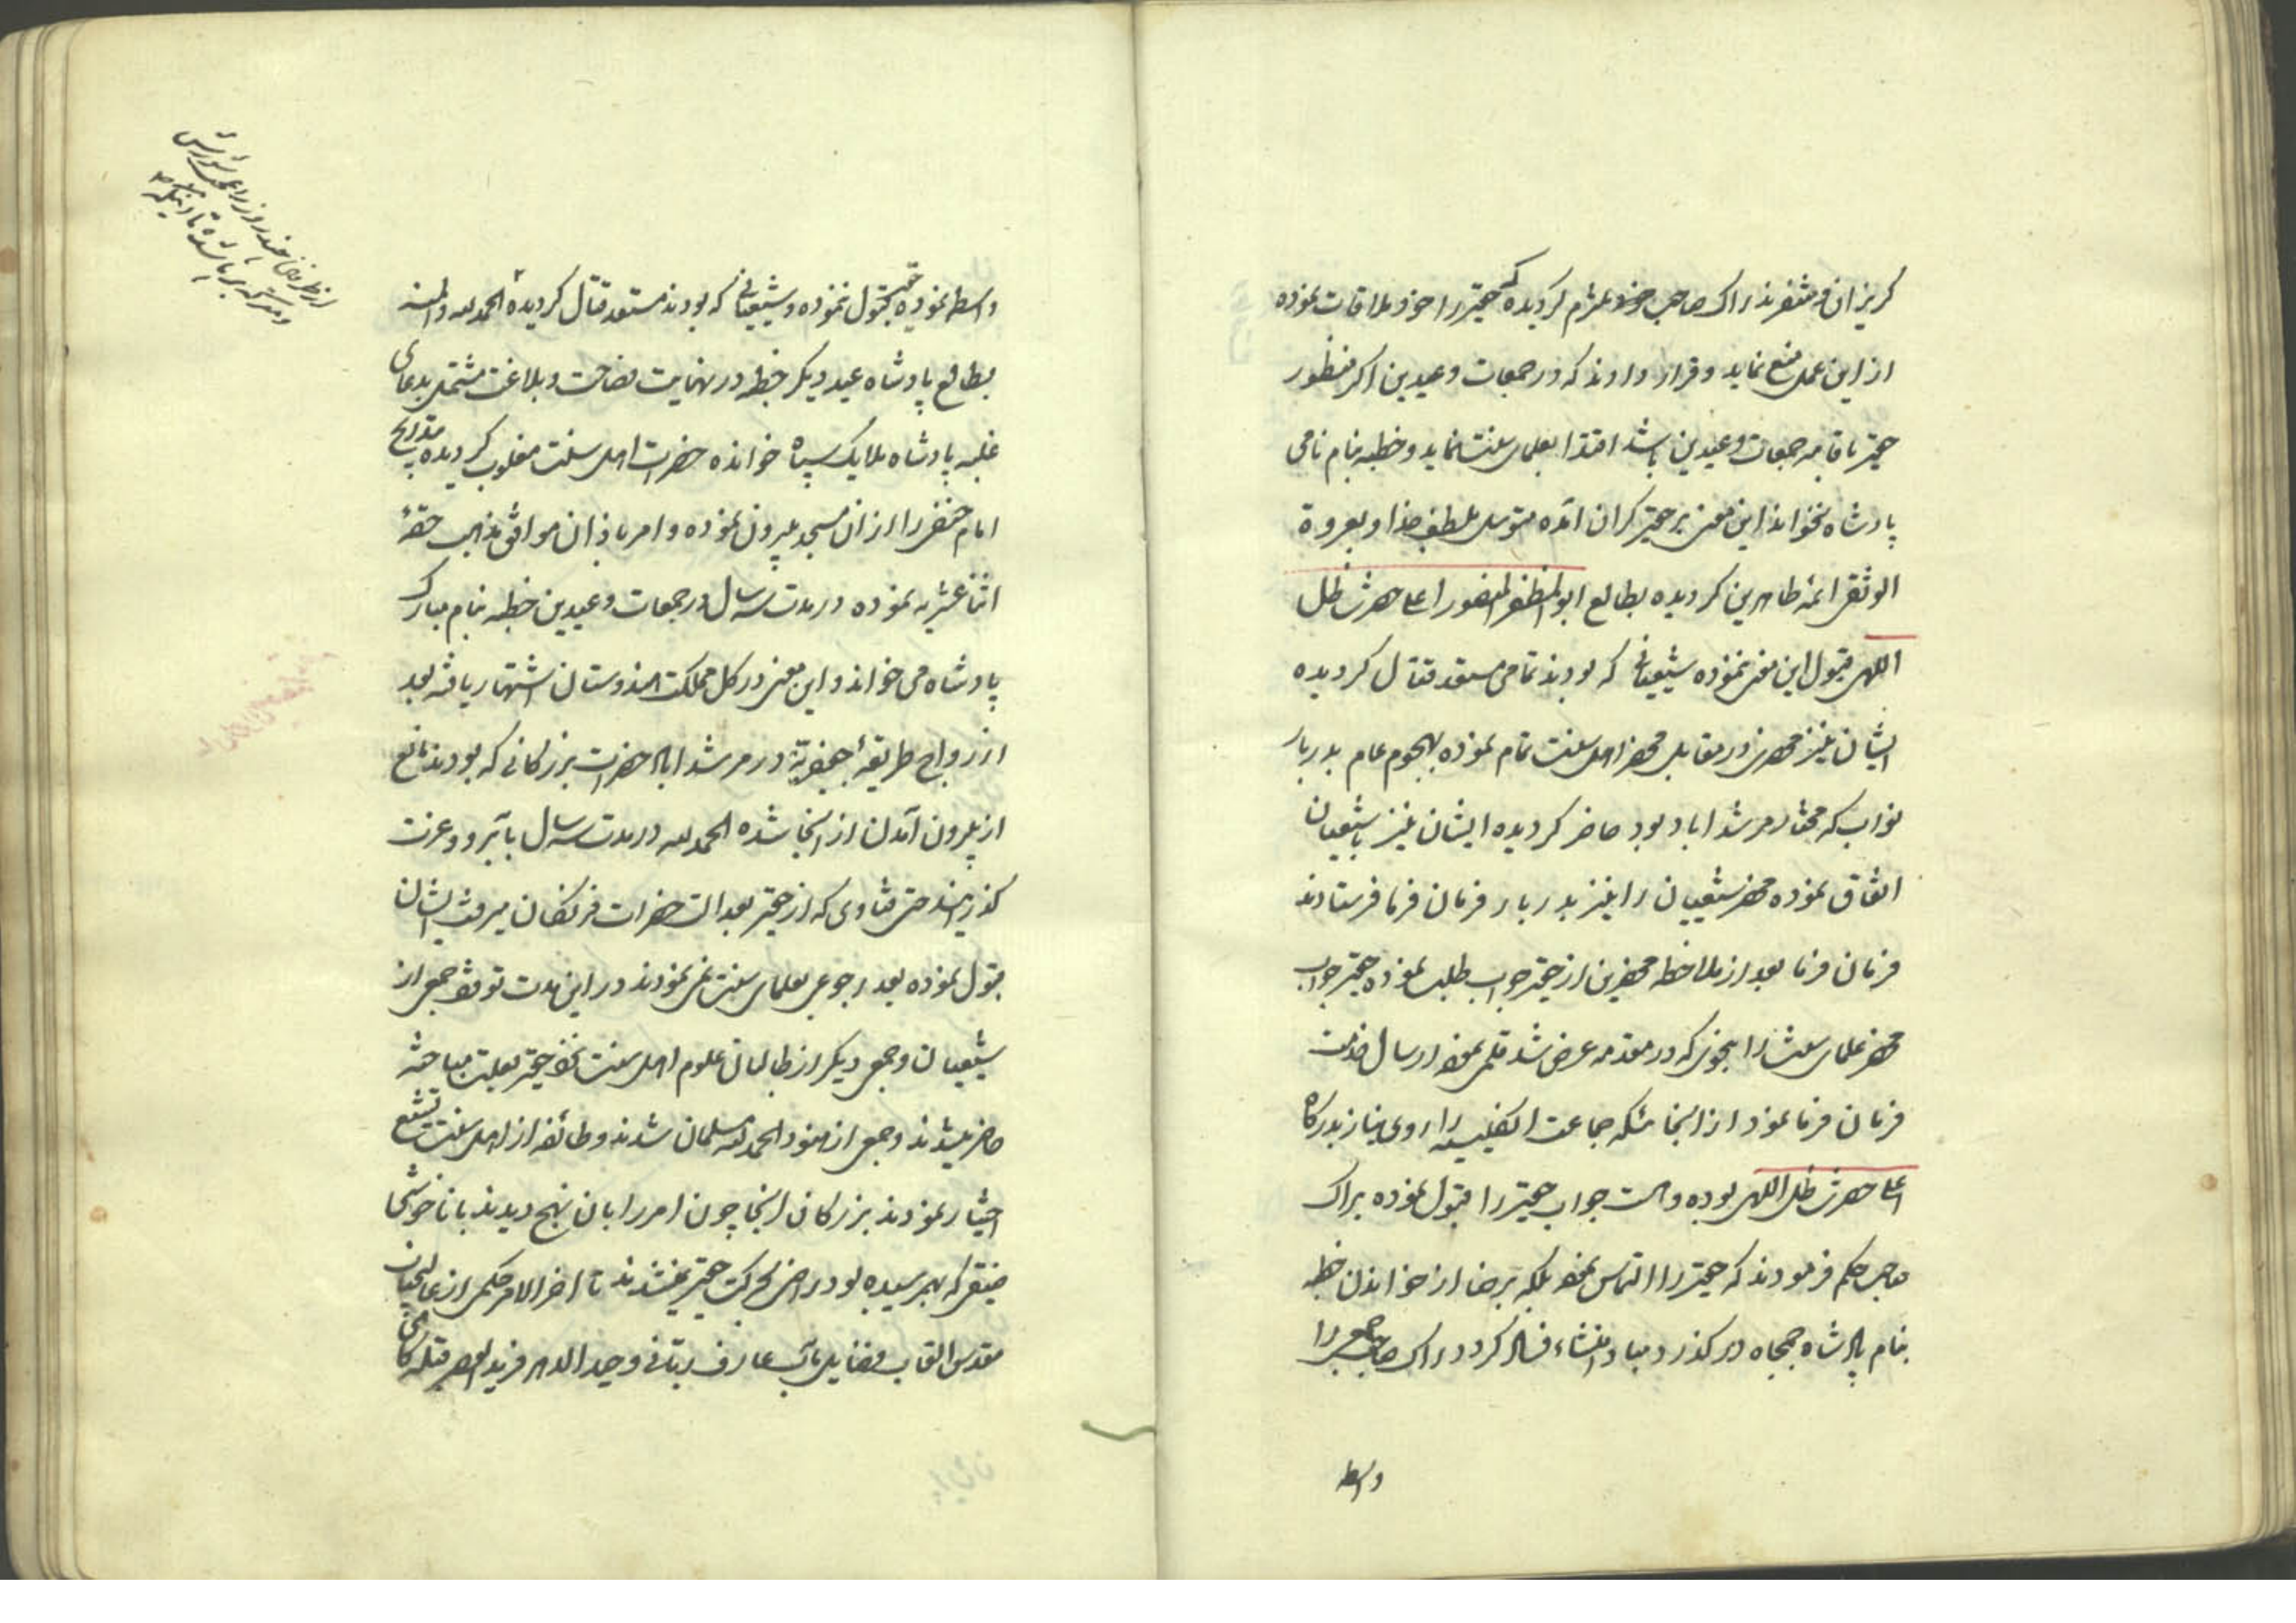 کریزان و متنفرند راک صاحب خود ملزم کردیده که حقیر را خود ملاقات نموده
از این عمل منع نماید و قرار دادند که در جمعات و عیدین اکر منظور
حقیر باقامه جمعات و عیدین باشد اقتدا بعلمای سنت نماید و خطبه بنام نامی
پادشاه نخواند این معنی بر حقیر کران آمده متوسل بلطف خدا و بعروة
الوثقی ائمه طاهرین کردیده بطالع ابوالمظفر المنصور اعلحضرت ظل
اللهی قبول این معنی ننموده شیعیانی که بودند تمامی مستعد قتال کردیده
ایشان نیز محضری در مقابل محضر اهل سنت تمام نموده بهجوم عام بدربار
نواب که مختار مرشداباد بود حاضر کردیده ایشان نیز با شیعیان
اتفاق نموده محضر شیعیان را نیز بدربار فرمان فرما فرستادند
فرمان فرما بعد از ملاحظه محضرین از حقیر جواب طلب نموده حقیر جواب
محضر علمای سنت را بنحوی که در مقدمه عرض شد قلمی نموده ارسال خدمت
فرمان فرما نمود از آنجا که جماعت انکلیسیه را روی نیاز بدرکاه
اعلحضرت ظل اللهی بوده و هست جواب حقیر را قبول نموده براک
صاحب حکم فرمودند که حقیر را التماس نموده بلکه برضا از خواندن خطبه
بنام پادشاه جمجاه در کذرد مبادا منشاء فساد کردد راک صاحب جمعی را
واسطه
واسطه نموده حقیر قبول ننموده و شیعیانی که بودند مستعد قتال کردیده الحمد لله و المنه
بطالع پادشاه عید دیکر خطبه در نهایت فصاحت و بلاغت مشتمل بدعای
غلبه پادشاه ملایک سپاه خوانده حضرات اهل سنت مغلوب کردیده
امام حنفی را از ان مسجد بیرون نموده و امر باذان موافق مذهب حقهٔ
اثنا عشریه نموده در مدت سه سال در جمعات و عیدین خطبه بنام مبارک
پادشاه می خواند و این معنی در کل مملکت هندوستان اشتهار یافته بعد
از رواج طریقهٔ جعفریه در مرشداباد حضرات بزرکانی که بودند مانع
از بیرون آمدن از آنجا شده الحمد لله در مدت سه سال با آبرو و عزت
کذرانید حتی فتاوی که از حقیر بعدالت حضرات فرنکان میرفت ایشان
قبول نموده بعد رجوعی بعلمای سنت نمی نمودند در این مدت توقف جمعی از
شیعیان و جمعی دیکر از طالبان علوم اهل سنت نزد حقیر بعلت مباحثه
حاضر میشدند و جمعی از هنود الحمد لله مسلمان شدند و طائفه از اهل سنت تشیع
اختیار نمودند بزرکان آنجا چون امر را بان نهج دیدند با ناخوشی
حقیر که بهم رسیده بود راضی بحرکت حقیر نمیشدند تا اخر الامر حکمی از عالیجناب
مقدس القاب فضایل مآب عارف ربانی وحید الدهر فرید العصر